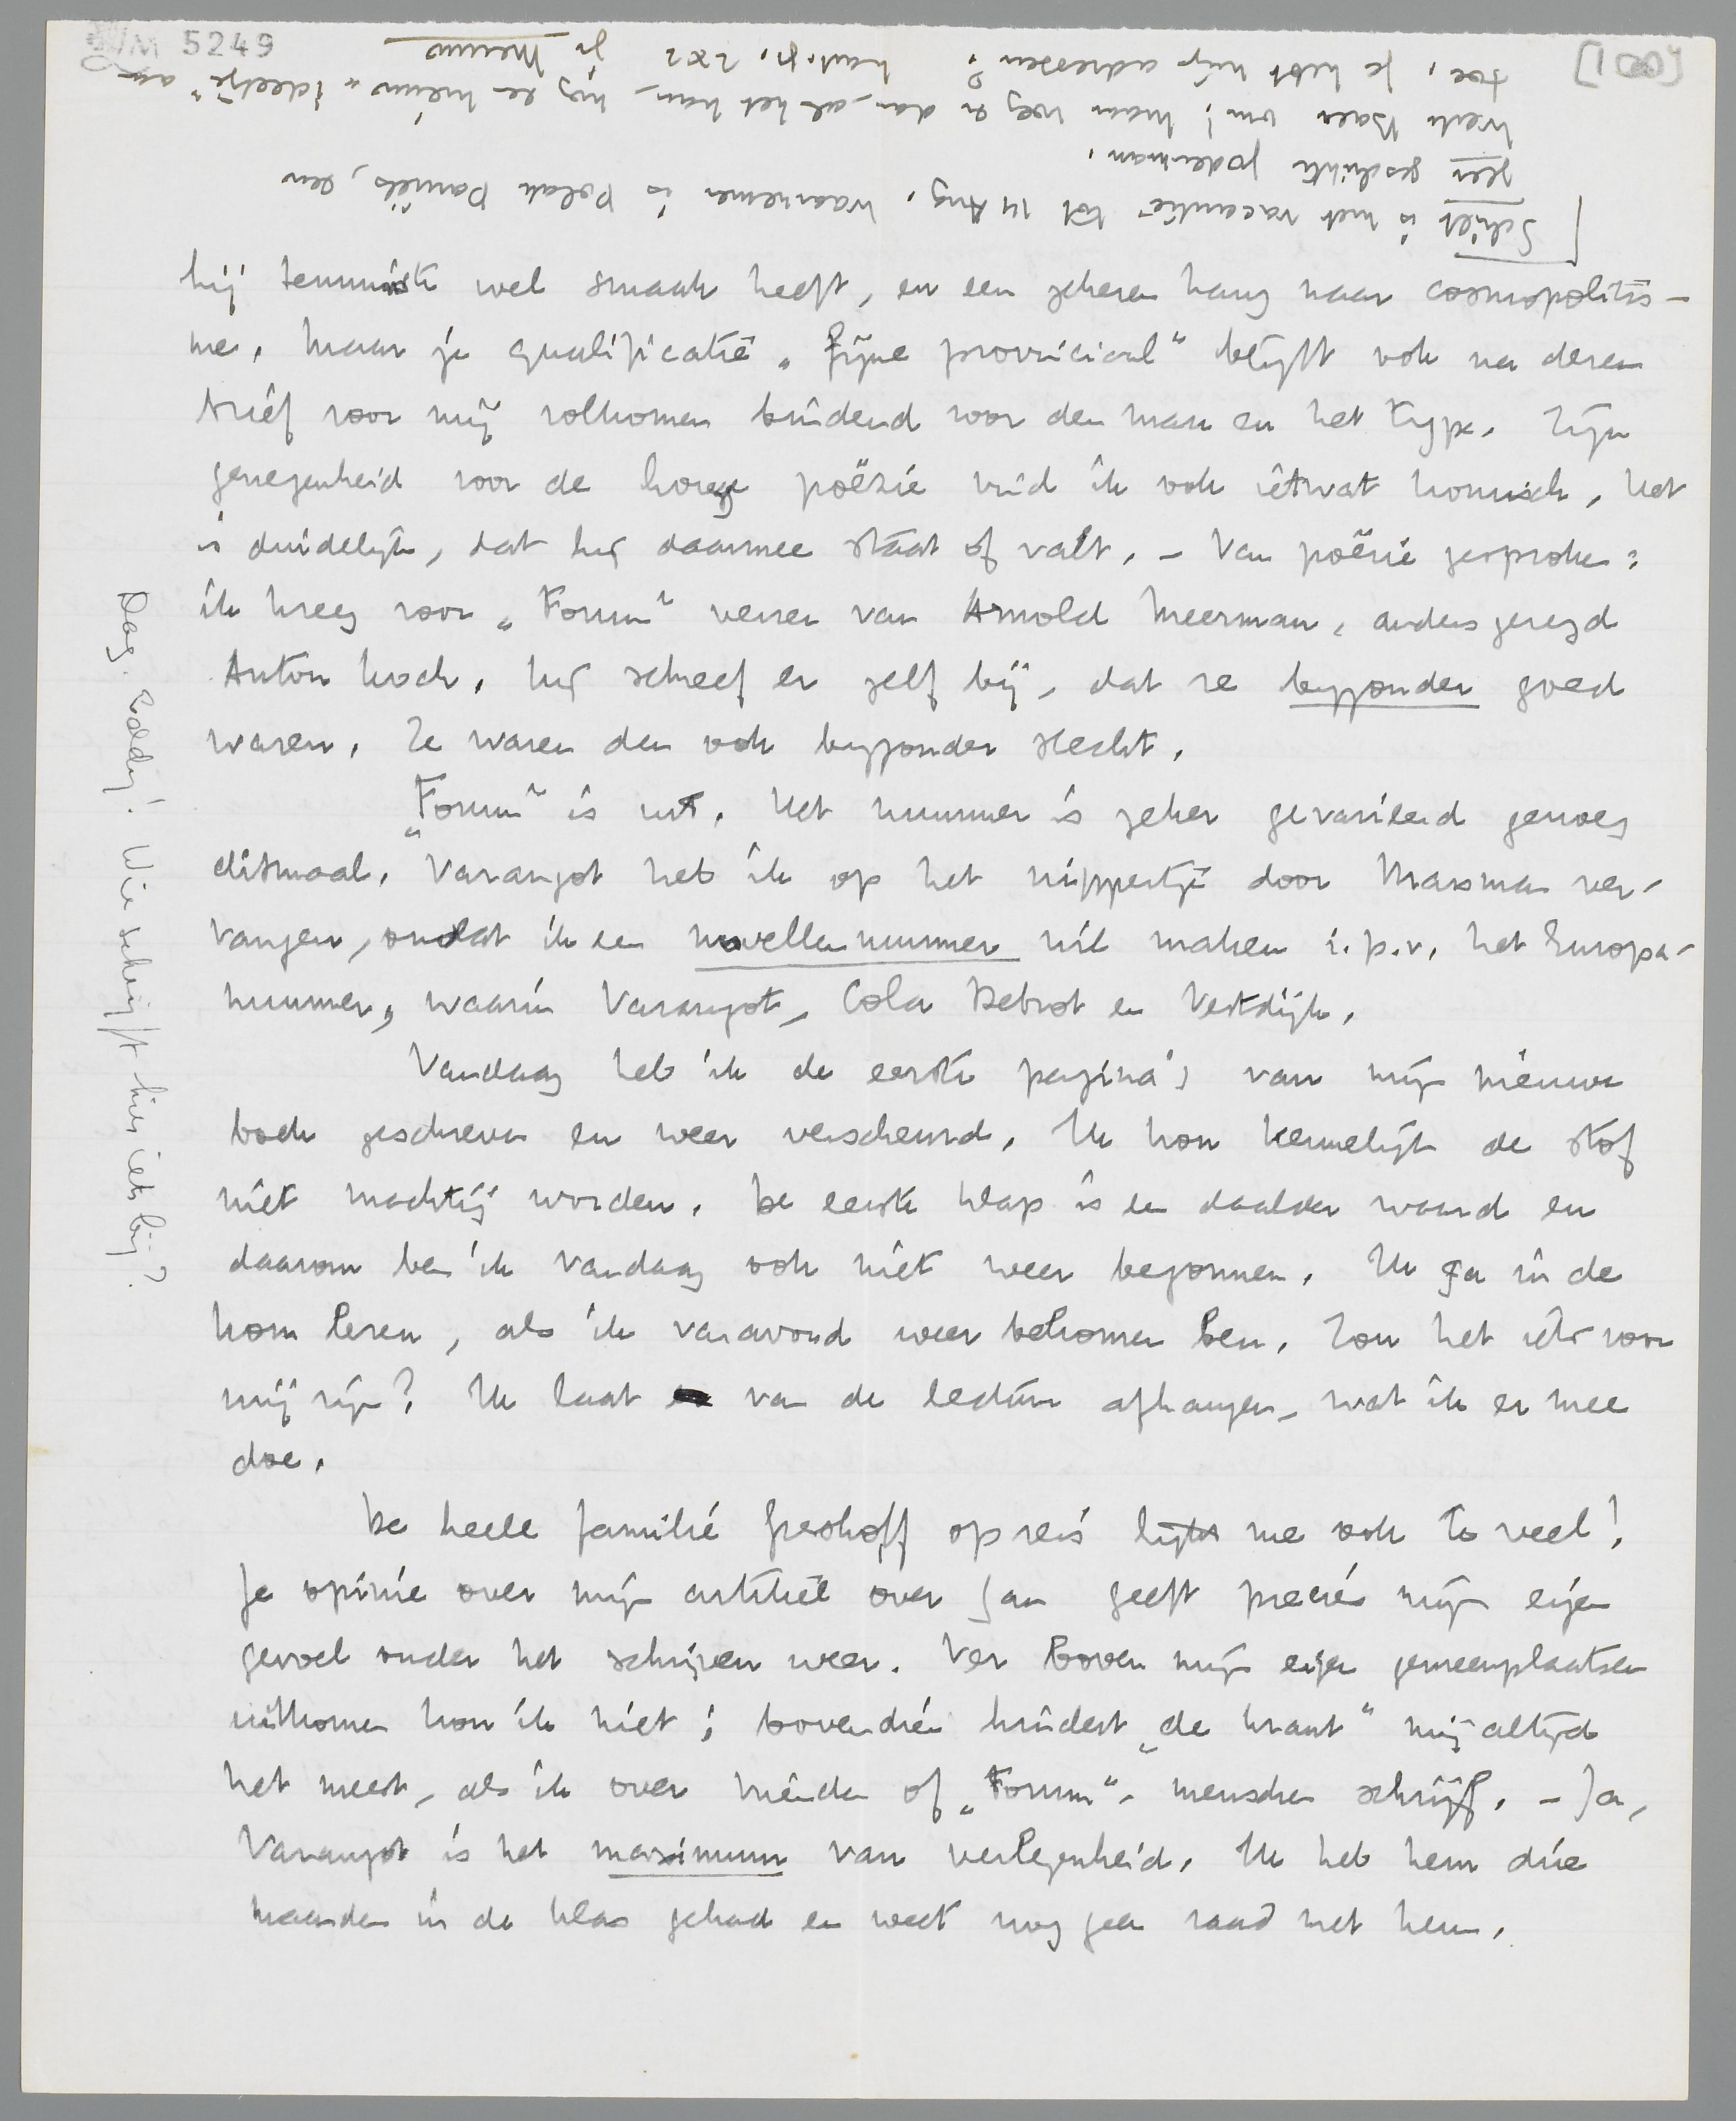 5249
[100]
hij tenminste wel smaak heeft, en een zekeren hang naar cosmopolitis-
me. Maar je qualificatie „fijne provinciaal" blijft ook na dezen
brief voor mij volkomen bindend voor den man en het type. Zijn
genegenheid voor de hooge poëzie vind ik ook ietwat komisch. Het
is duidelijk, dat hij daarmee staat of valt. – Van poëzie gesproken:
ik kreeg voor „Forum" verzen van Arnold Meerman, anders gezegd
Anton Koch. Hij schreef er zelf bij, dat ze bijzonder goed
waren. Ze waren dan ook bijzonder slecht.
„Forum" is uit. Het nummer is zeker gevarieerd genoeg
ditmaal. Varangot heb ik op het nippertje door Marsman ver-
vangen, omdat ik een novellennummer wil maken i.p.v. het Europa-
nummer, waarin Varangot, Cola Debrot en Vestdijk.
Vandaag heb ik de eerste pagina's van mijn nieuwe
boek geschreven en weer verscheurd. Ik kon kennelijk de stof
niet machtig worden. De eerste klap is een daalder waard en
daarom ben ik vandaag ook niet weer begonnen. Ik ga in de
kom lezen, als ik vanavond weer bekomen ben. Zou het iets voor
mij zijn? Ik laat van de lectuur afhangen, wat ik er mee
doe.
De heele familie Greshoff op reis lijkt me ook te veel!
Je opinie over mijn artikel over Jan geeft precies mijn eigen
gevoel onder het schrijven weer. Ver boven mijn eigen gemeenplaatsen
uitkomen kon ik niet; bovendien hindert „de krant" mij altijd
het meest, als ik over vrienden of „Forum"-menschen schrijf. – Ja,
Varangot is het maximum van verlegenheid. Ik heb hem drie
maanden in de klas gehad en weet nog geen raad met hem.
[Schilt is met vacantie tot 14 Aug. Waarnemer is Polak Daniëls, een
zeer geschikte jodenman.
Werk Baer om! Maar voeg er dan, als het kan, nog een nieuw „ideetje" aan
toe. Je hebt mijn adressen? hart. gr. 2 x 2 je Menno
Dag. Eddy! Wie schrijft hier iets bij?